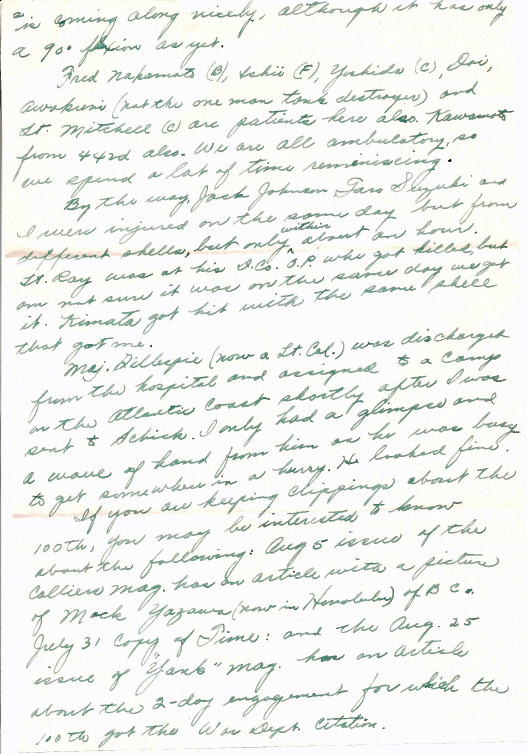 is coming along nicely, although it has only
a 90° flexion as yet.
Fred Nakamoto (B), Ishii (F), Yoshida (C), Doi,
Awakuni (not the one man tank destroyer) and
Lt. Mitchell (C) are patients here also. Kawamoto
from 442d also. We are all ambulatory, so
we spend a lot of time reminiscing.
By the way, Jack Johnson, Taro Suzuki and
I were injured on the same day but from
different shells, but only within about an hour.
Lt. Ray was at his D.Co. O.P. who got killed, but
am not sure it was on the same day we got
it. Kimata got hit with the same shell
that got me.
Maj. Gillespie (now a Lt. Col.) was discharged
from the hospital and assigned to a camp
on the Atlantic Coast shortly after I was
sent to Schick. I only had a glimpse and
a wave of hand from him as he was busy
to get somewhere in a hurry. He looked fine.
If you are keeping clippings about the
100th, you may be interested to know
about the following: Aug 5 issue of the
Colliers Mag. has an article with a picture
of Mack Yazawa (now in Honolulu) of B Co.
July 31 Copy of Time: and the Aug. 25
issue of "Yank" mag. has an article
about the 2-day engagement for which the
100th got the War Dept. Citation.